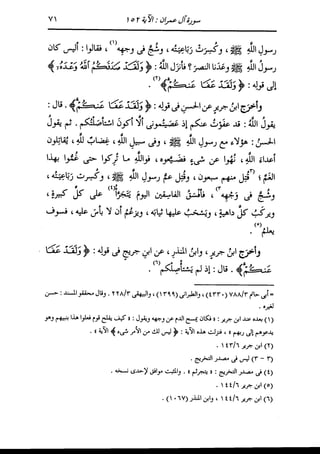 سورة آل عمران : الآية ١٥٢ ٧١
رسول الله ﷺ ، وكسرت رباعيته ، وشج في وجهه(١) ، فقالوا : أليس كان
رسول الله ﷺ وعدنا النصر ؟ فأنزل الله : ﴿ ولقد صدقكم الله وعده ﴾
إلى قوله : ﴿ ولقد عفا عنكم ﴾(٢) .
وأخرج ابن جرير عن الحسن في قوله : ﴿ ولقد عفا عنكم ﴾ . قال :
يقول الله : قد عفوت عنكم إذ عصيتموني ألا أكون استأصلتكم . ثم يقول
الحسن : هؤلاء مع رسول الله ﷺ ، وفي سبيل الله ، غضاب لله ، يقاتلون
أعداء الله ، نهوا عن شيء فضيعوه ، فوالله ما تركوا حتى غموا بهذا
الغم ؛ قتل منهم سبعون ، وقتل عم رسول الله ﷺ ، وكسرت رباعيته ،
وشج في وجهه(٣) ، فأفسق الفاسقين اليوم يتجرأ(٤) على كل كبيرة ،
ويركب كل داهية ، ويسحب عليها ثيابه ، ويزعم أن لا بأس عليه ، فسوف
يعلم(٥) .
وأخرج ابن جرير ، وابن المنذر ، عن ابن جريج في قوله : ﴿ ولقد عفا
عنكم ﴾ . قال : إذ لم يستأصلكم(٦) .
= أبي حاتم ٧٨٨/٣ (٤٣٣٠) ، والطبراني (١٣٩٩) ، والبيهقي ٢٢٨/٣ . وقال محققو المسند : حسن
لغيره .
(١) بعده عند ابن جرير : « فكان يمسح الدم عن وجهه ويقول : « كيف يفلح قوم فعلوا هذا بنبيهم وهو
يدعوهم إلى ربهم » ، فنزلت هذه الآية : ﴿ ليس لك من الأمر شيء ﴾ الآية » .
(٢) ابن جرير ١٤٣/٦ .
(٣ - ٣) ليس في مصدر التخريج .
(٤) في مصدر التخريج : « يتجرثم » . والمثبت موافق لإحدى نسخه .
(٥) ابن جرير ١٤٤/٦ .
(٦) ابن جرير ١٤٤/٦ ، وابن المنذر (١٠٦٧) .